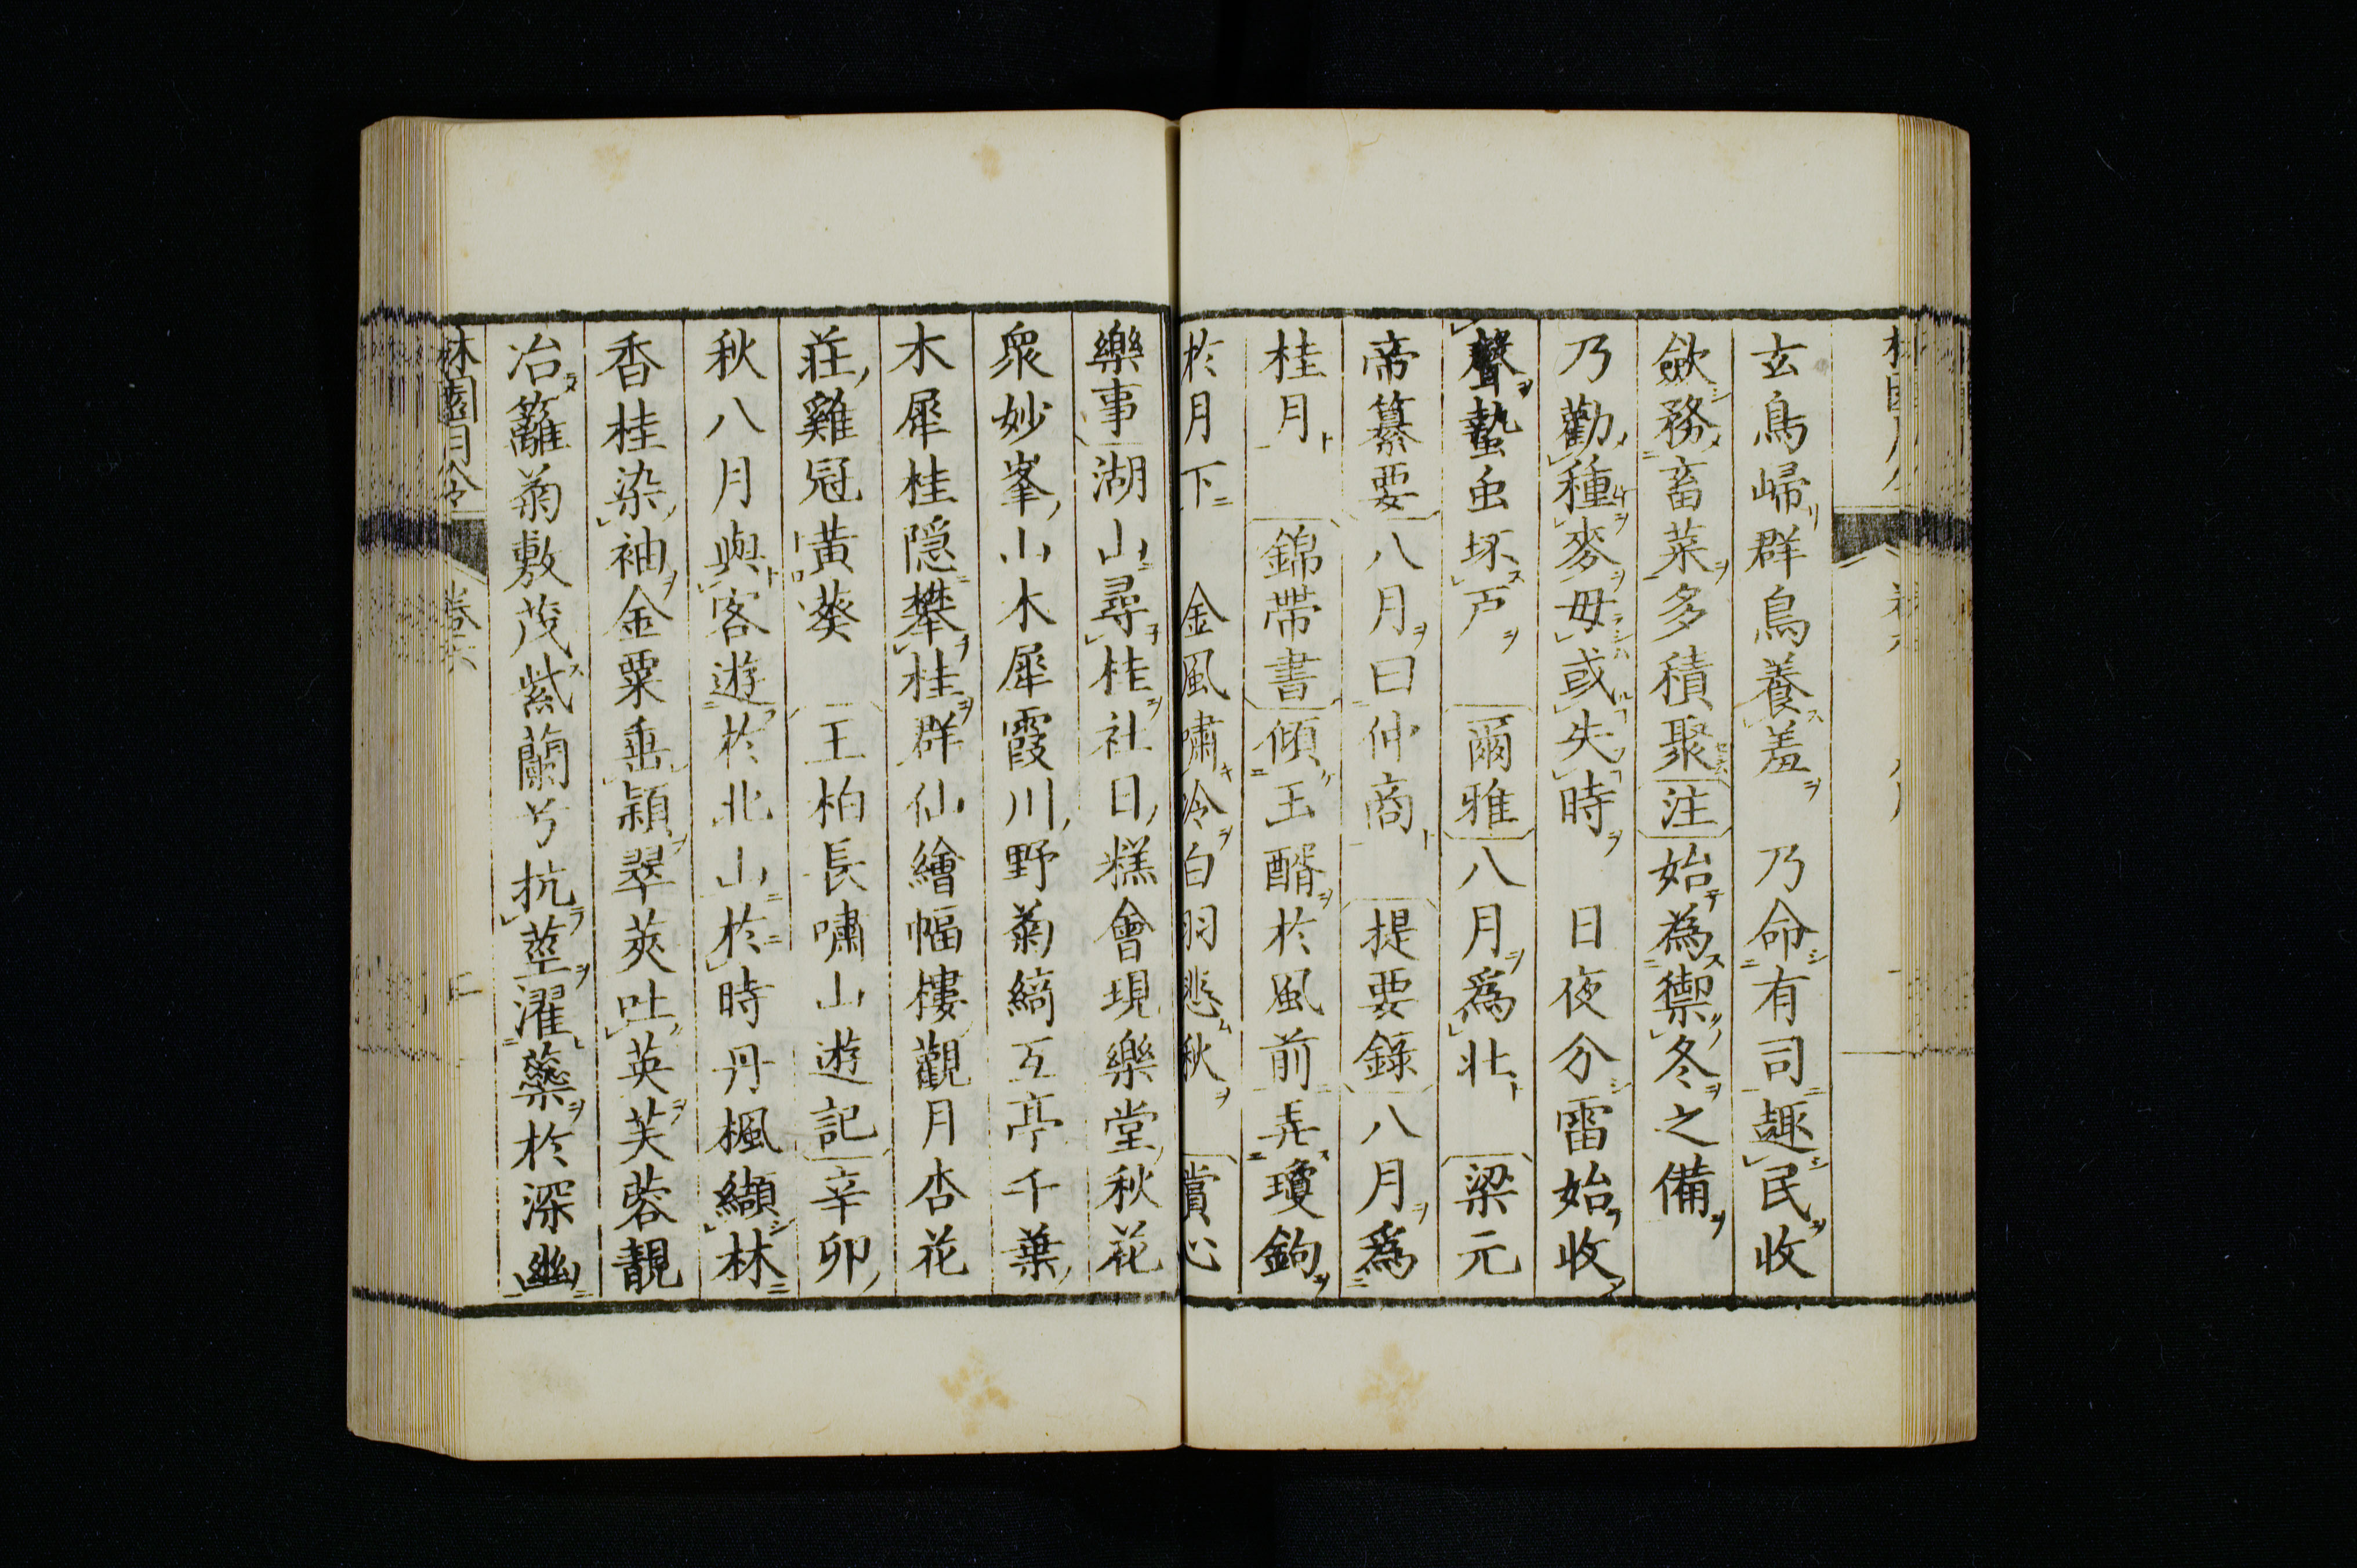 玄鳥㱕群鳥養羞　乃命有司趣民收
斂務畜菜多積聚注始為禦冬之備
乃勸種麥毋或失時　日夜分雷始收
聲蟄虫坏戸　爾雅八月爲壯　梁元
帝纂要八月曰仲商　提要錄八月爲
桂月　錦帶書傾玉醑於風前弄瓊鉤
於月下　金風嘯冷白羽悲秋　賞心
樂事湖山尋桂社日糕會現樂堂秋花
衆妙峯山木犀霞川野菊縞互亭千葉
木犀桂隠攀桂群仙繪幅樓觀月杏花
莊雞冠黃葵　王柏長嘯山遊記辛卯
秋八月與客遊於北山於時丹楓纈林
香桂染袖金粟垂穎翠莢吐英芙蓉靚
冶籬菊敷茂紫蘭兮抗莖濯蘂於深幽
林園月令　卷六